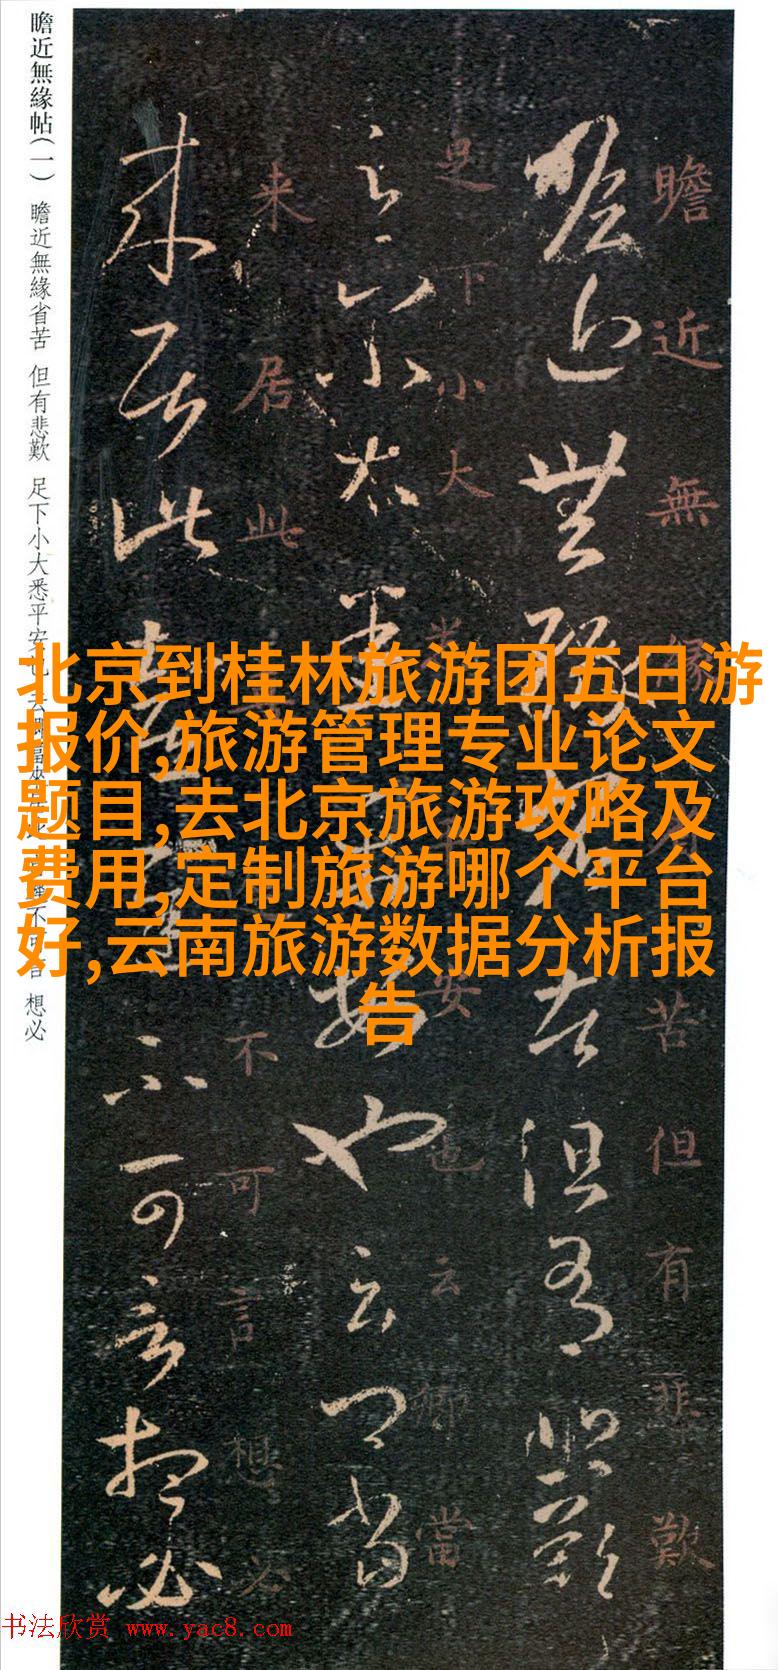 瞻近無緣帖(一) 瞻近無緣省苦 但有悲歎 足下小大悉平安
想必
瞻近無
苦但有悲歎
足下小大
安也云卿當
来居此
不可言想必
北京到桂林旅游团五日游
报价,旅游管理专业论文
题目,去北京旅游攻略及
费用,定制旅游哪个平台
好,云南旅游数据分析报
告
书法欣赏 www.yac8.com